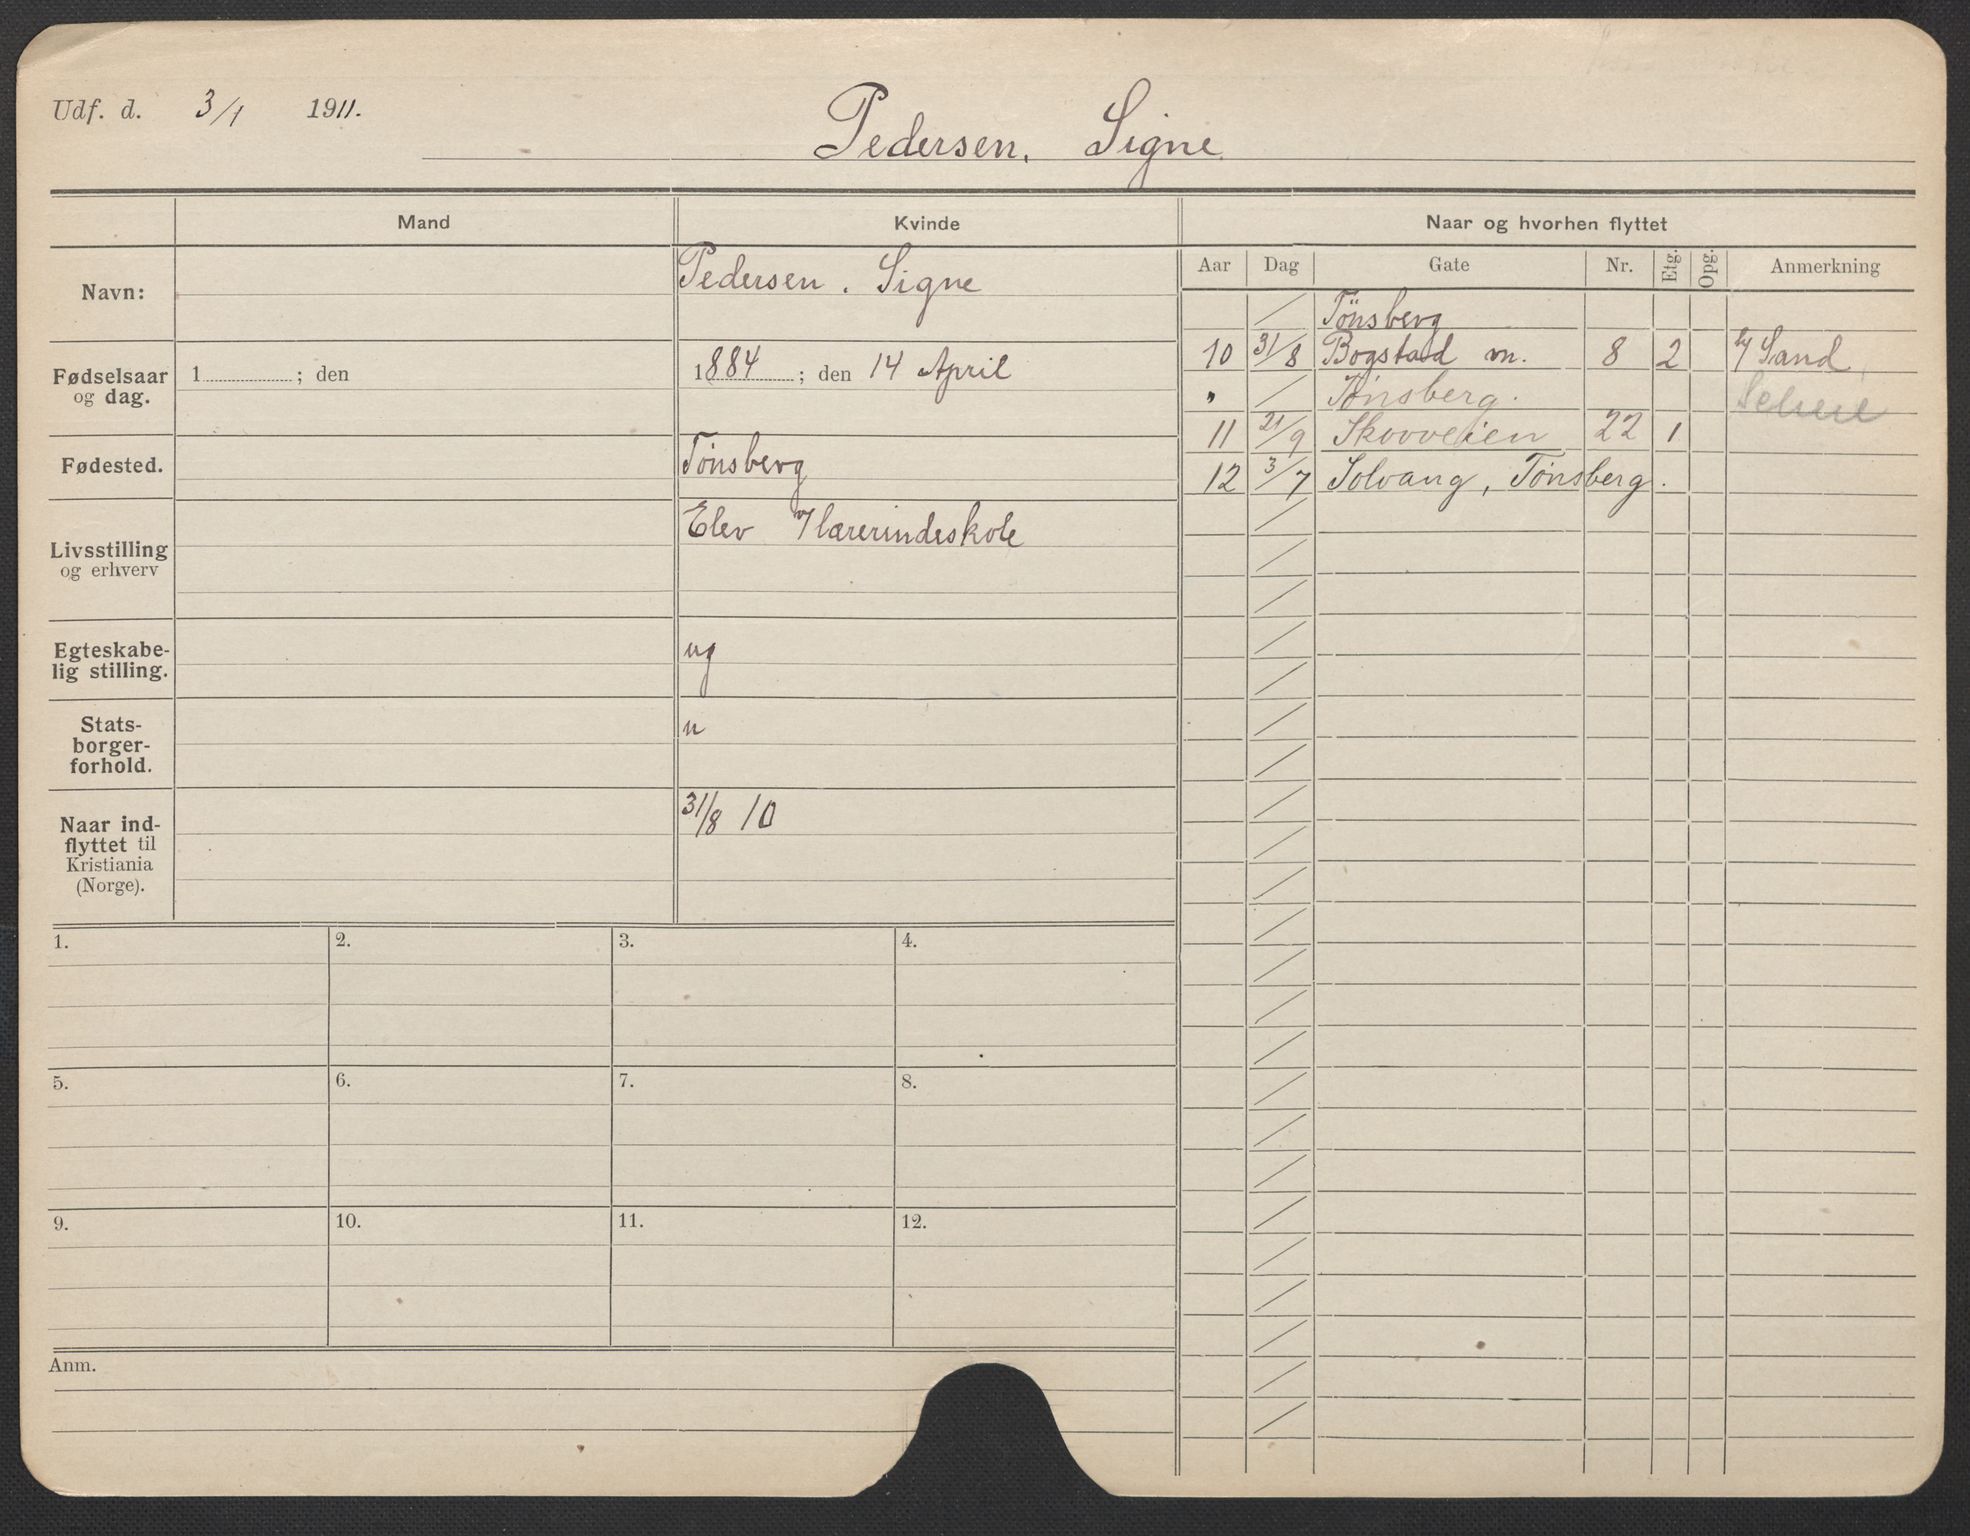 Udf. d. 3/1 1911.
Pedersen. Signe
Mand Kvinde Naar og hvorhen flyttet
Navn: Pedersen. Signe
Fødselsaar og dag. 1 ; den 1884 ; den 14 April
Fødested. Tönsberg
Livsstilling og erhverv Elev v/ lærerindeskole
Egteskabe-
lig stilling. ug
Stats-
borger-
forhold. n
Naar ind-
flyttet til
Kristiania
(Norge). 31/8 10
Aar Dag Gate Nr. Etg. Opg. Anmerkning
/ Tönsberg
10 31/8 Bogstad v. 8 2 h/ Sand
" / Tönsberg.
11 21/9 Skovveien 22 1
12 3/7 Solvang, Tønsberg.
1. 2. 3. 4.
5. 6. 7. 8.
9. 10. 11. 12.
Anm.